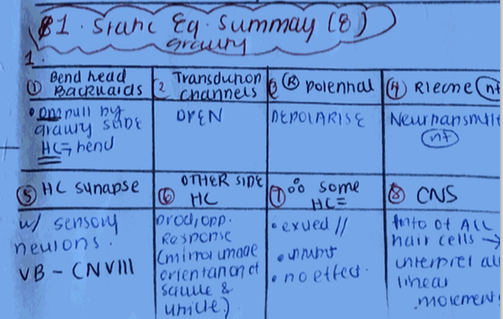 §1. Static Eq. Summay (8)
gravity
1.
① Bend head Backwards
2 Transduction channels
③ Ⓡ potential
④ Rlecne nt
• pull by
gravity slide
HC → bend
OPEN
DEPOLARISE
Neurtransmitt
nt
⑤ HC synapse
⑥ OTHER SIDE HC
⑦ ∴ some HC =
⑧ CNS
w/ sensory
neurons.
VB - CNVIII
prod. opp.
Response
(mirror image
orientation of
saccule &
utricle)
• excited //
• inhibit
• no effect.
Info of ALL
hair cells →
interpret all
linear
movement